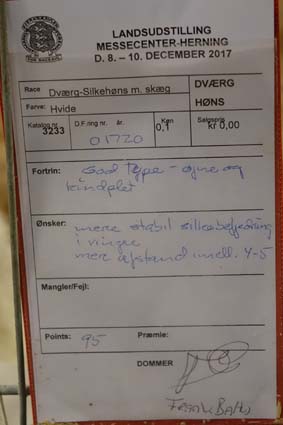 LANDSUDSTILLING
MESSECENTER-HERNING
D. 8. – 10. DECEMBER 2017
Race Dværg-Silkehøns m. skæg
DVÆRG
HØNS
Farve: Hvide
Katalog nr. 3233
D.F.ring nr. år. 01720
Køn 0,1
Salgspris kr 0,00
Fortrin: God type - øjne og
kindplet
Ønsker: mere stabil silkebefjedring
i vinger
mer afstand mell. 4-5
Mangler/Fejl:
Points: 95 Præmie:
DOMMER